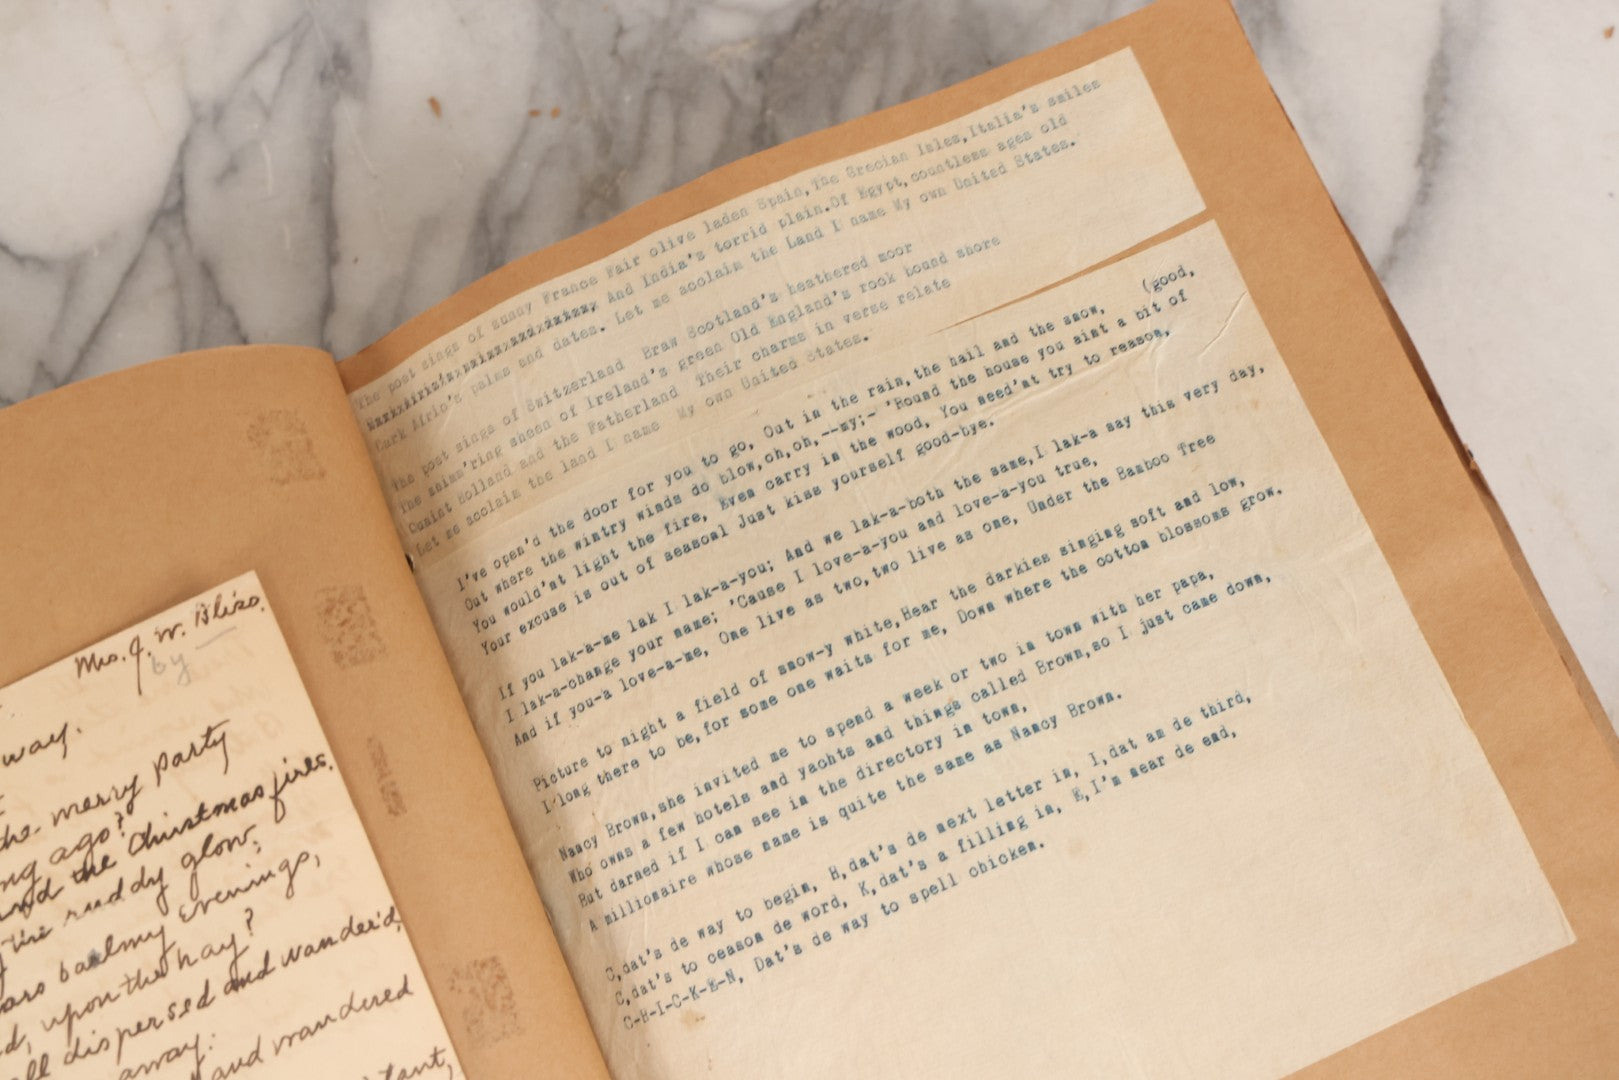 Mrs. J. W. Bliss.
by
way.
the merry party
ng ago?
and the Christmas fires.
the ruddy glow;
balmy evenings,
upon the hay?
all dispersed and wander'd,
away:
and wandered
tant,
The poet sings of sunny France Fair olive laden Spain,The Grecian Isles,Italia's smiles
And India's torrid plain.Of Egypt,countless ages old
Dark Afric's palms and dates. Let me acclaim the Land I name My own United States.
The poet sings of Switzerland Braw Scotland's heathered moor
The shimm'ring sheen of Ireland's green Old England's rock bound shore
Quaint Holland and the Fatherland Their charms in verse relate
Let me acclaim the land I name My own United States.
I've open'd the door for you to go, Out in the rain,the hail and the snow, (good,
Out where the wintry winds do blow,oh,oh,oh,--my;- 'Round the house you aint a bit of
You would'nt light the fire, Even carry in the wood, You need'nt try to reason,
Your excuse is out of season! Just kiss yourself good-bye.
If you lak-a-me lak I lak-a-you; And we lak-a-both the same,I lak-a say this very day,
I lak-a-change your name; 'Cause I love-a-you and love-a-you true,
And if you-a love-a-me, One live as two,two live as one, Under the Bamboo Tree
Picture to night a field of snow-y white,Hear the darkies singing soft and low,
I long there to be,for some one waits for me, Down where the cotton blossoms grow.
Nancy Brown,she invited me to spend a week or two in town with her papa,
Who owns a few hotels and yachts and things called Brown,so I just came down,
But darned if I can see in the directory in town,
A millionaire whose name is quite the same as Nancy Brown.
C,dat's de way to begin, H,dat's de next letter in, I,dat am de third,
C,dat's to ceason de word, K,dat's a filling in, E,I'm near de end,
C-H-I-C-K-E-N, Dat's de way to spell chicken.